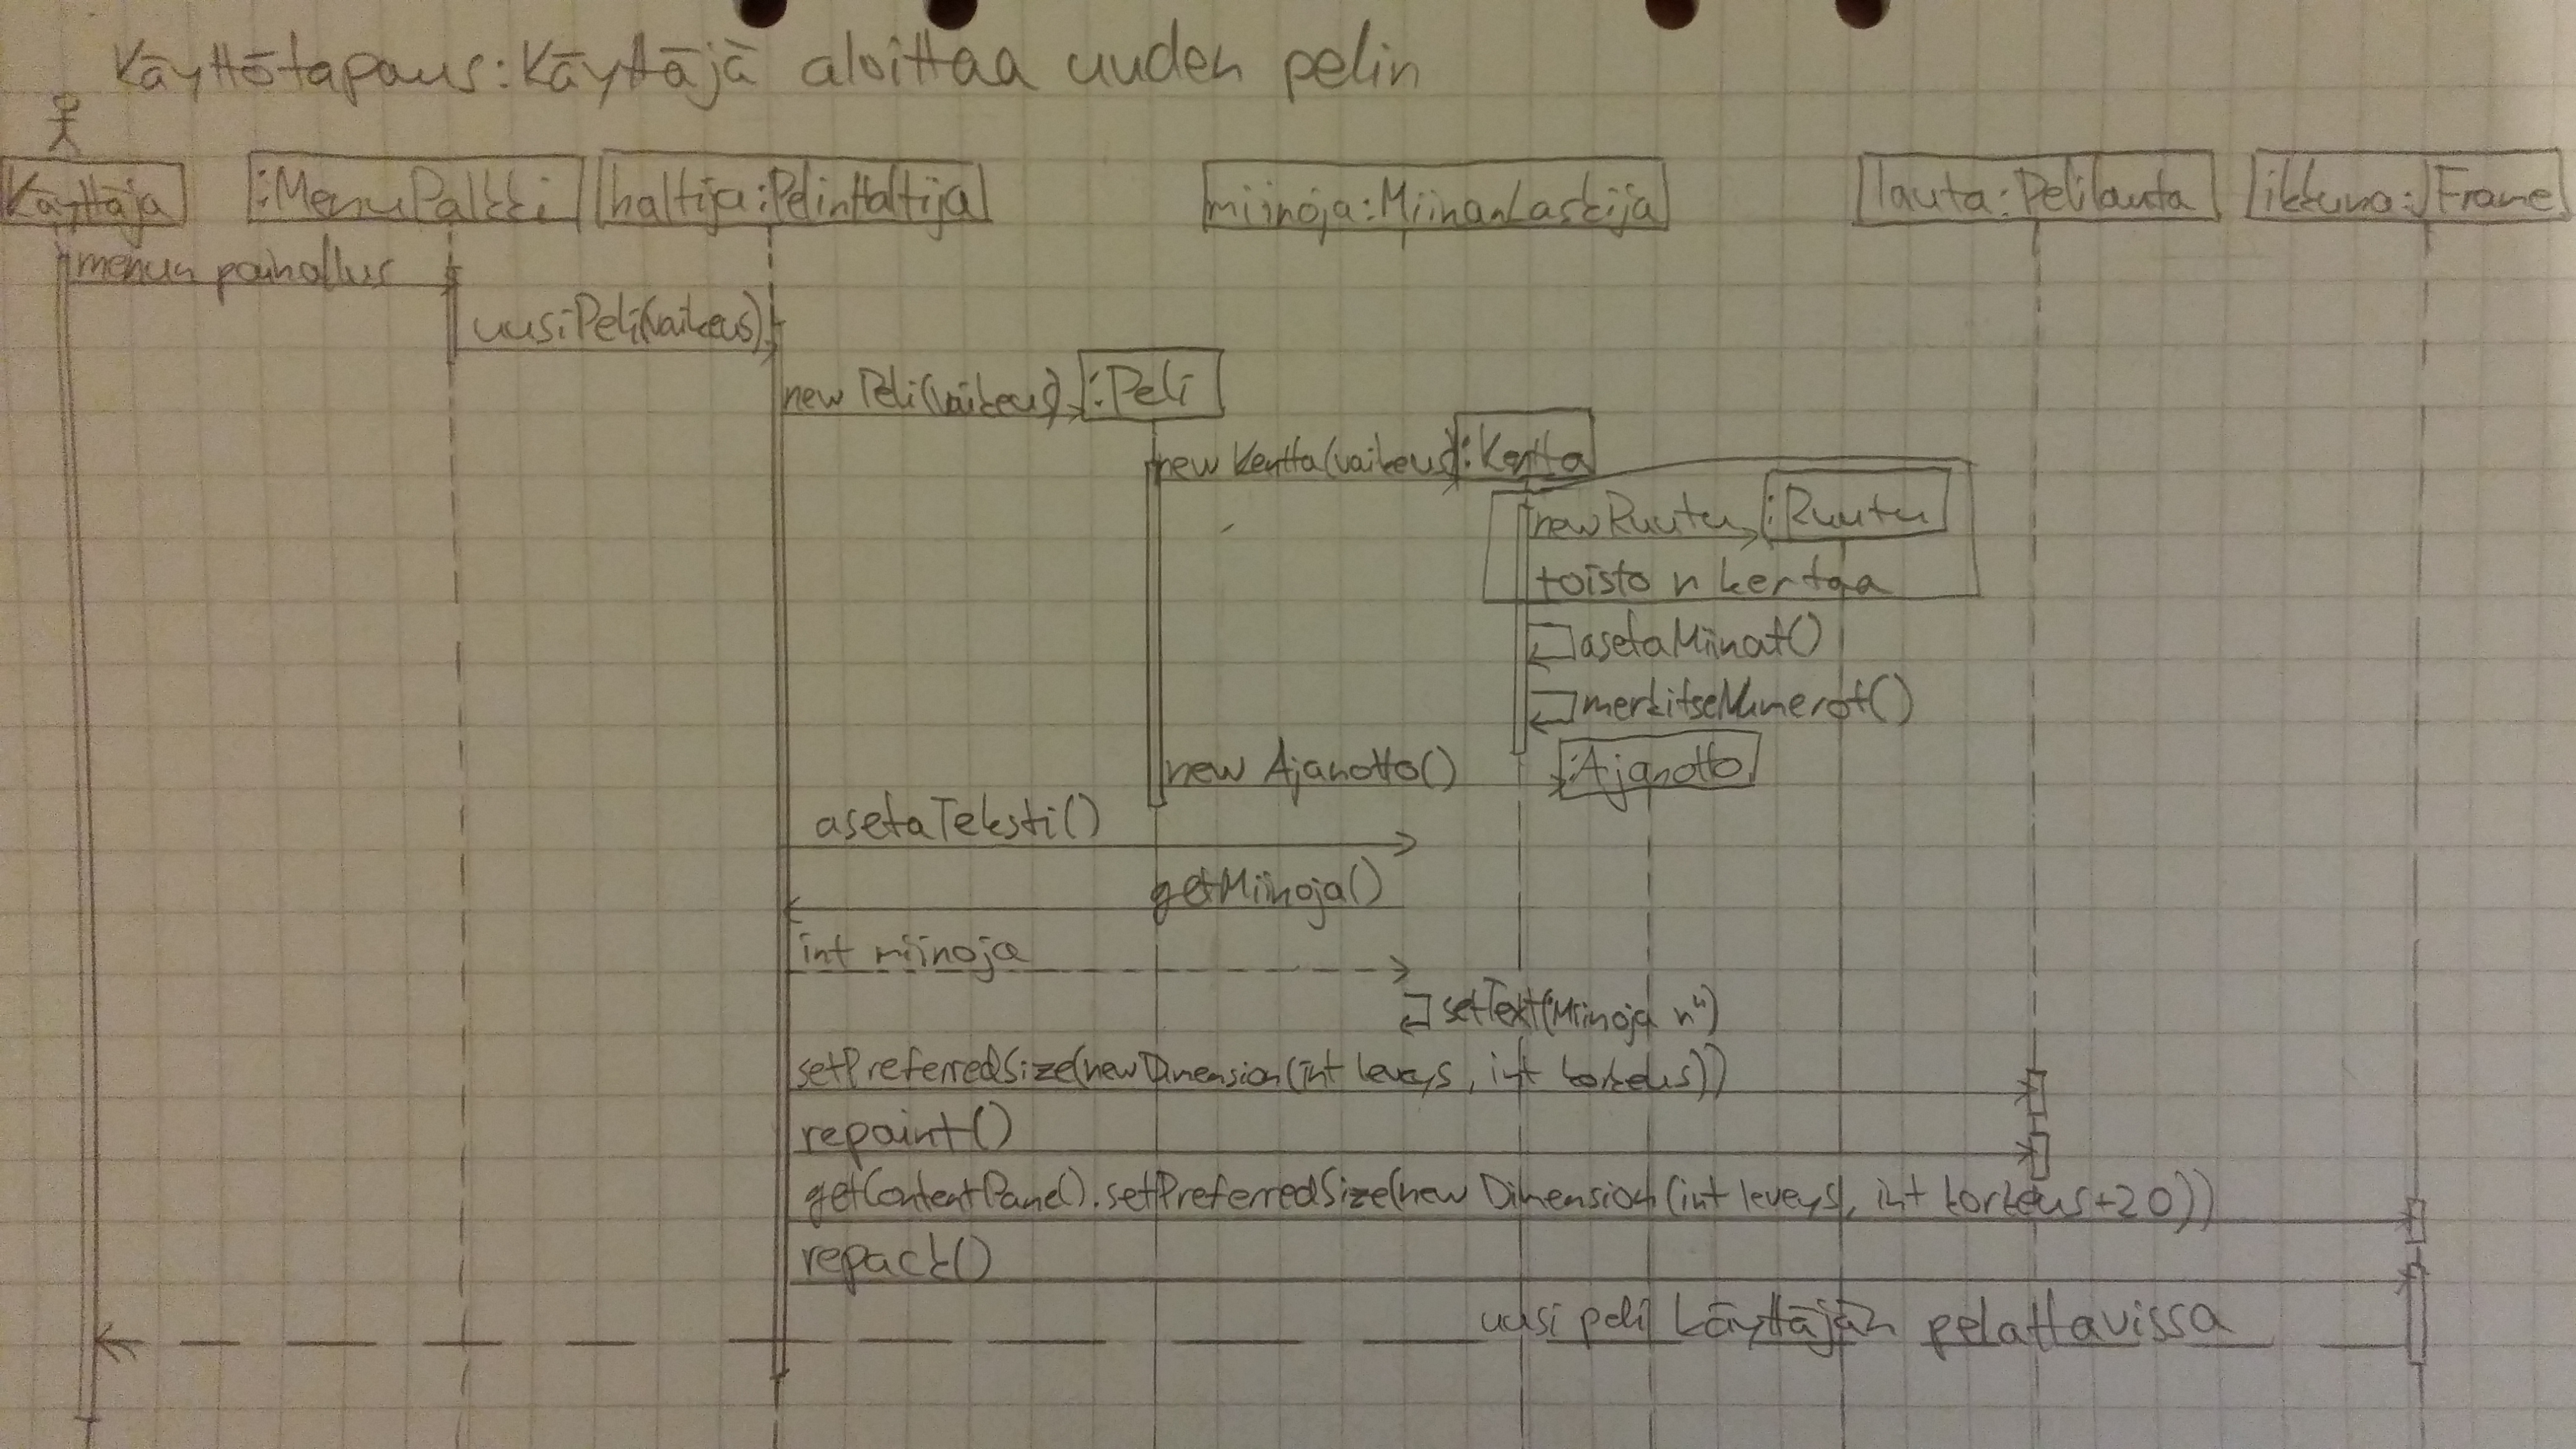 Käyttötapaus: Käyttäjä aloittaa uuden pelin
Käyttäjä :MenuPalkki haltija:PelinHaltija miinoja:MiinanLaskija lauta:Pelilauta ikkuna:JFrame
menun painallus
uusiPeli(vaikeus)
new Peli(vaikeus) :Peli
new Kentta(vaikeus) :Kentta
new Ruutu :Ruutu
toisto n kertaa
asetaMiinat()
merkitseNumerot()
new Ajanotto() :Ajanotto
asetaTeksti()
getMiinoja()
int miinoja
setText("Miinoja n")
setPreferredSize(new Dimension(int leveys, int korkeus))
repaint()
getContentPane().setPreferredSize(new Dimension(int leveys, int korkeus+20))
repack()
uusi peli käyttäjän pelattavissa